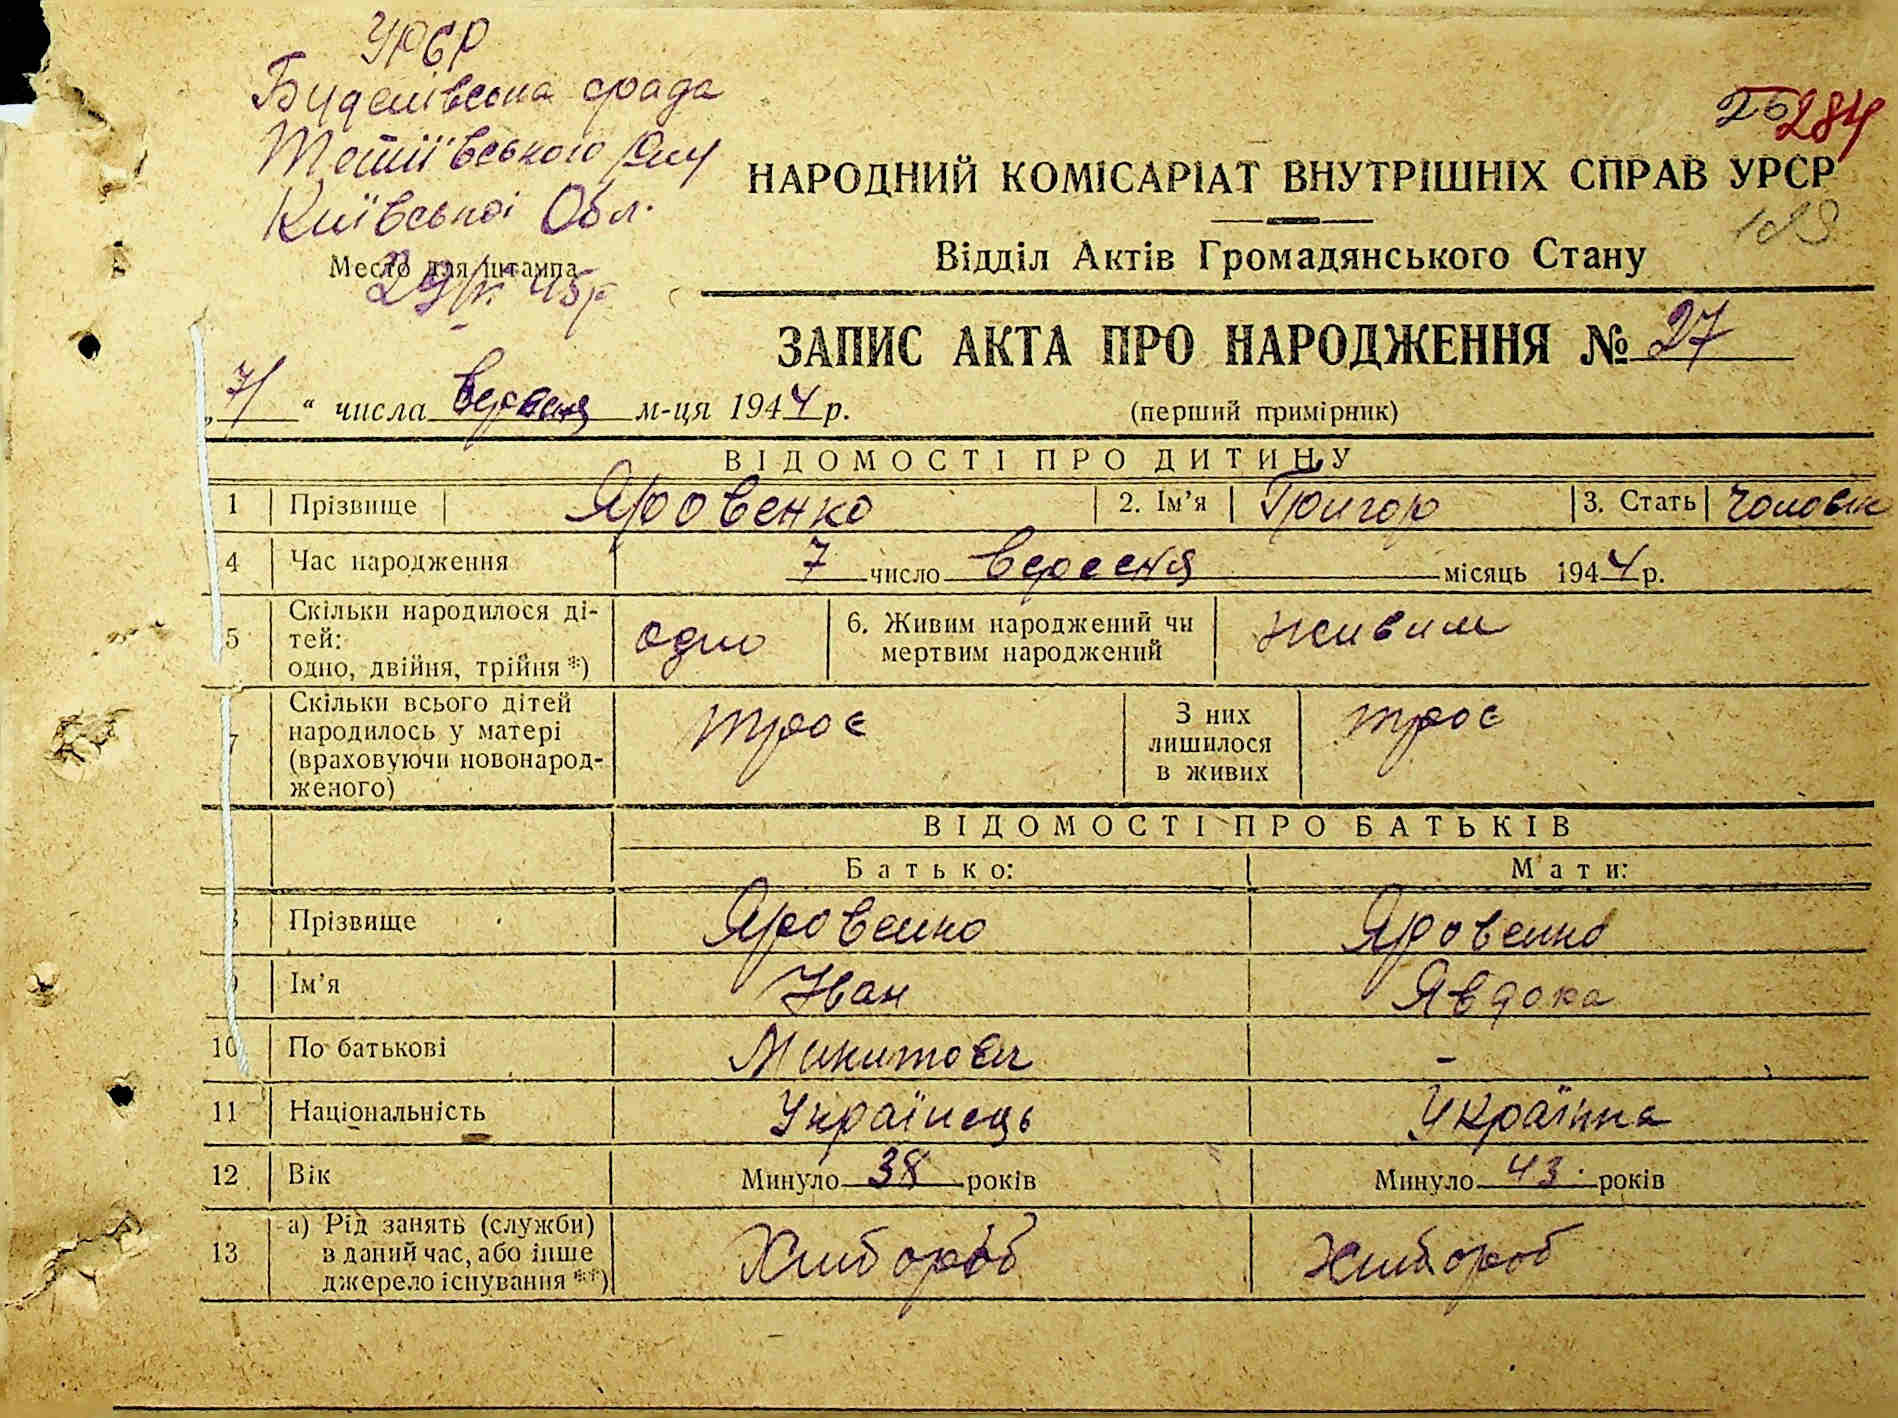 УРСР
срада
Тетіївського р-ну
Київської Обл.
Место для штампа
284
НАРОДНИЙ КОМІСАРІАТ ВНУТРІШНІХ СПРАВ УРСР
Відділ Актів Громадянського Стану
ЗАПИС АКТА ПРО НАРОДЖЕННЯ № 27
„7“ числа вересня м-ця 1944 р.
(перший примірник)
ВІДОМОСТІ ПРО ДИТИНУ
1 Прізвище Яровенко 2. Ім’я Григор 3. Стать чоловік
4 Час народження 7 число вересня місяць 1944 р.
5 Скільки народилося ді-
тей:
одно, двійня, трійня *) одно
6. Живим народжений чи
мертвим народжений живим
7 Скільки всього дітей
народилось у матері
(враховуючи новонарод-
женого) троє
З них
лишилося
в живих троє
ВІДОМОСТІ ПРО БАТЬКІВ
Батько: Мати:
8 Прізвище Яровенко Яровенко
9 Ім’я Іван Явдоха
10 По батькові Микитович -
11 Національність Українець Українка
12 Вік Минуло 38 років Минуло 43 років
13 а) Рід занять (служби)
в даний час, або інше
джерело існування **) Хлібороб Хлібороб